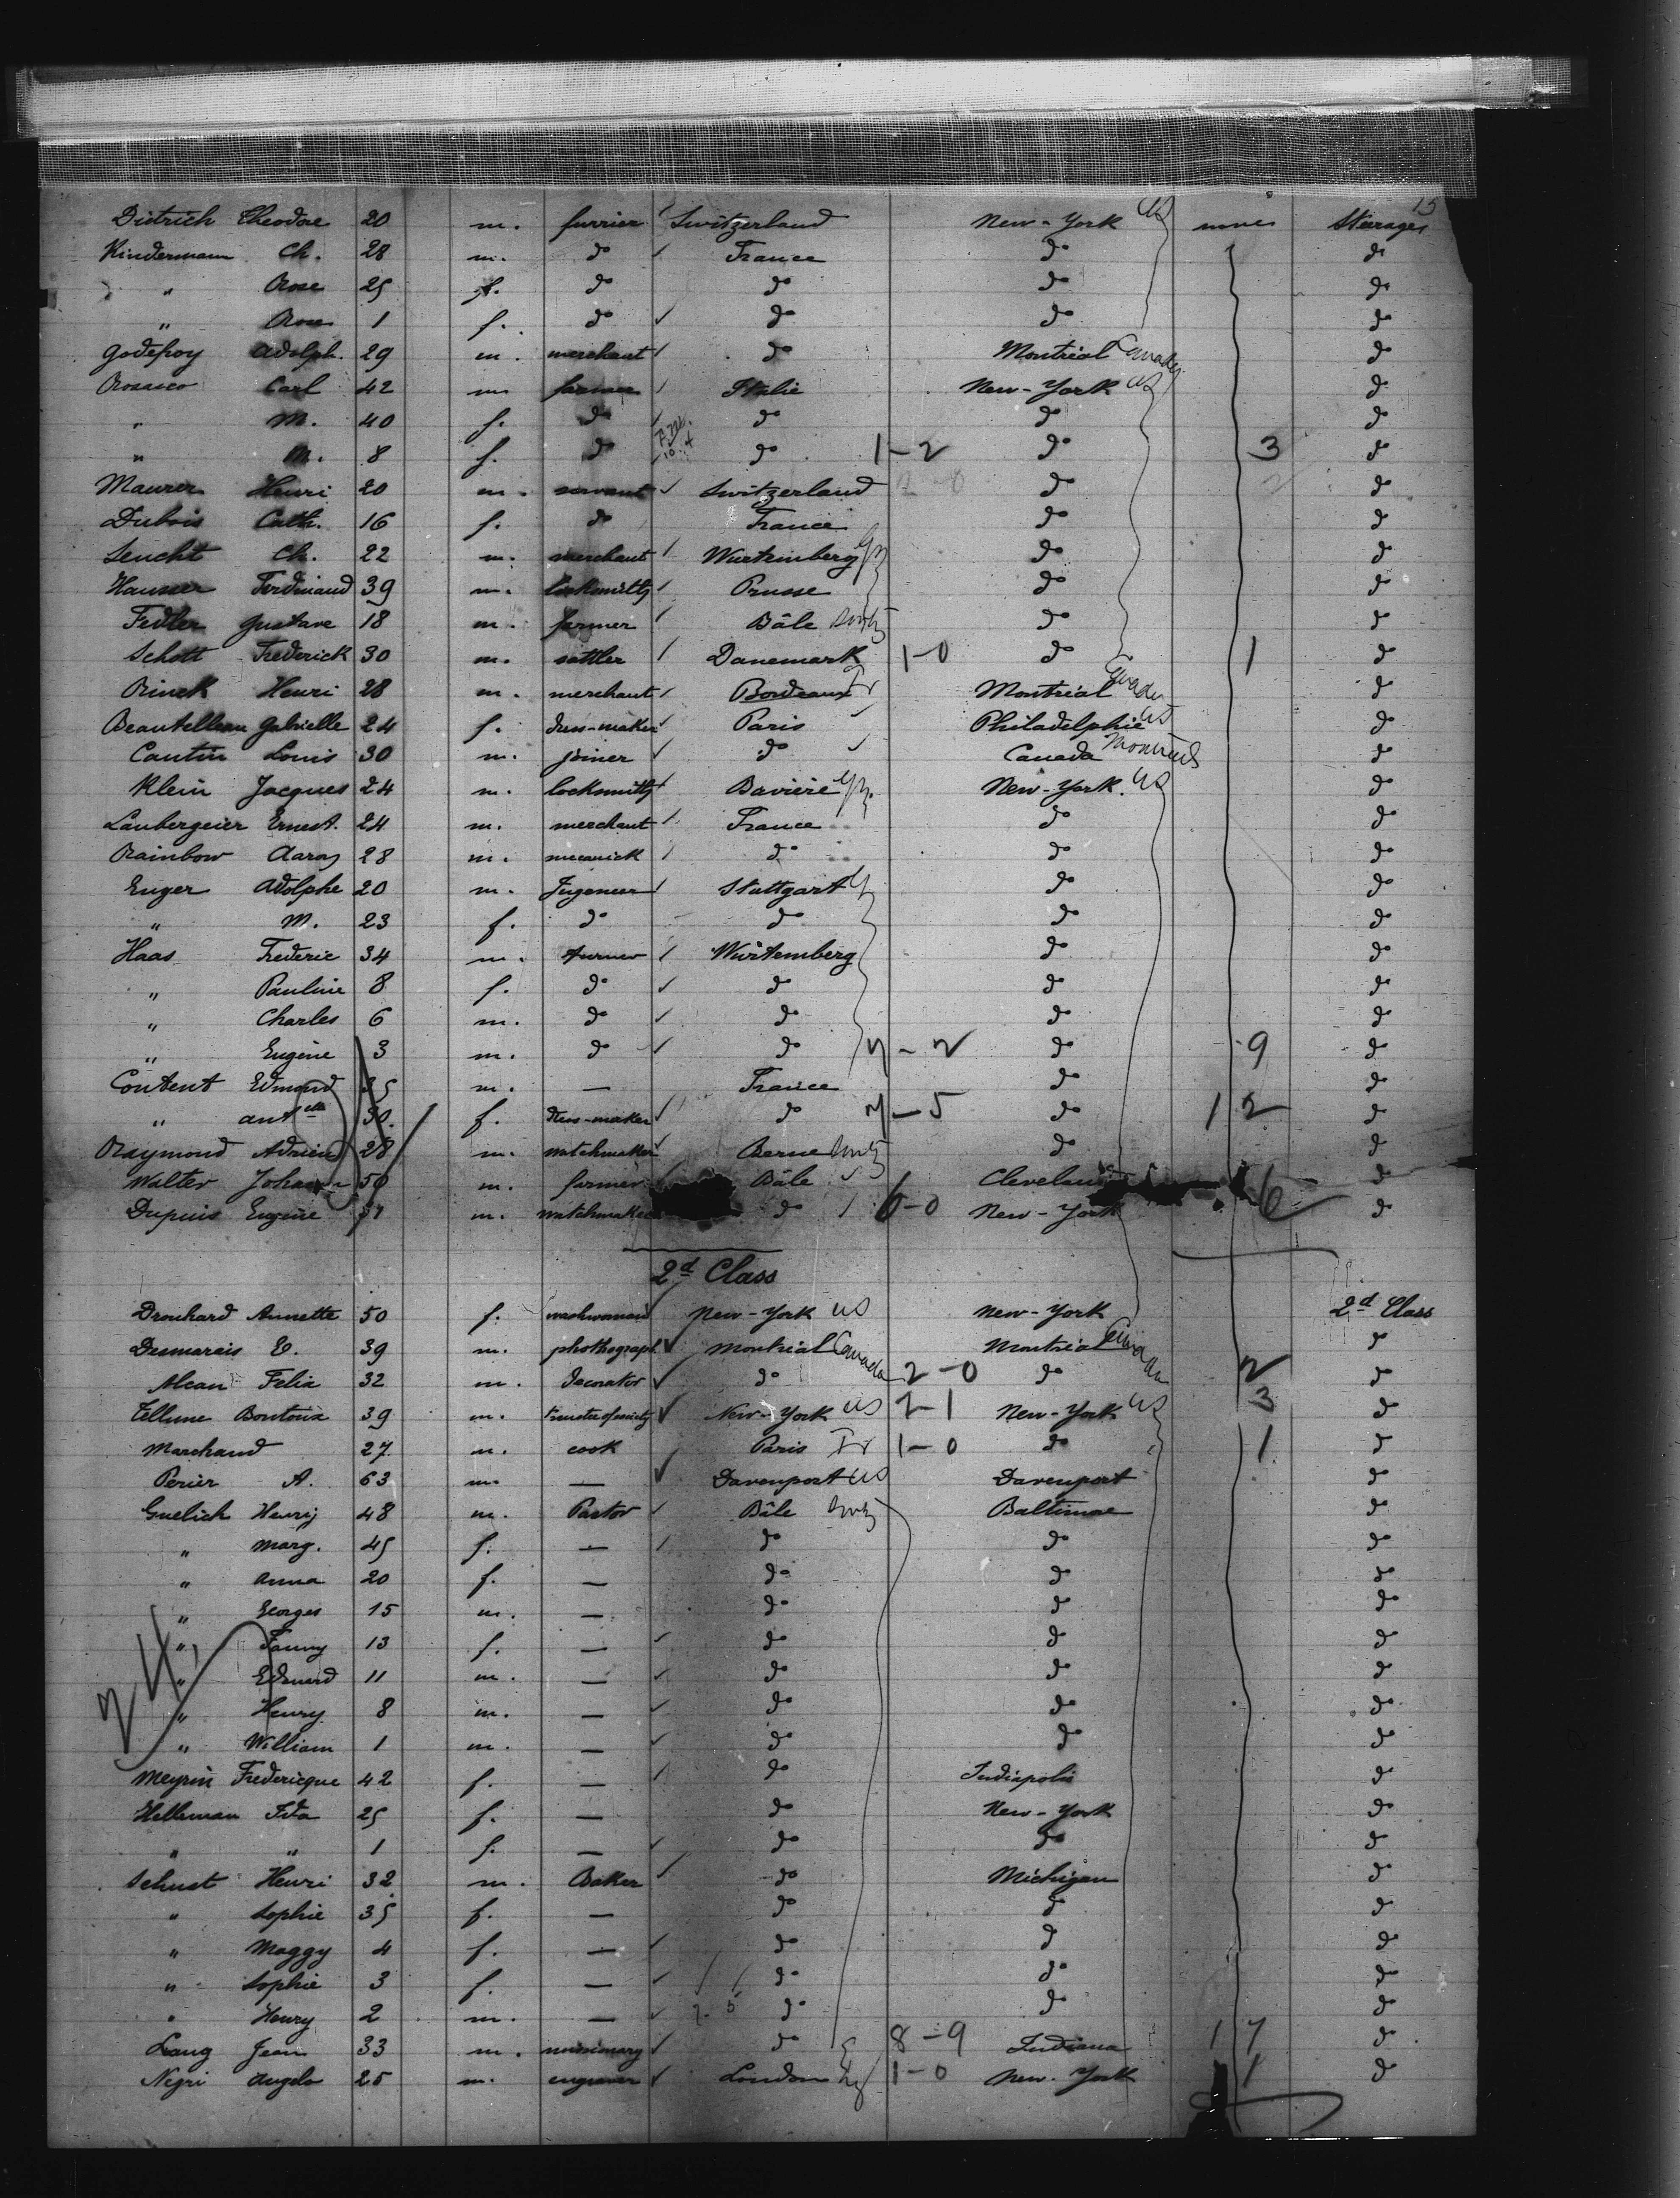 15
Dietrich Theodore 20 m. furrier Switzerland New-York US none Steerage
Kindermann Ch. 28 m. do France do do
" Rose 25 f. do do do do
" Rose 1 f. do do do do
Godefroy Adolph. 29 m. merchant do Montréal Canada do
Rosasco Carl 42 m. farmer Italie New-York US do
" M. 40 f. do do do do
" M. 8 f. do do 1-2 do 3 do
Maurer Henri 20 m. servant Switzerland do do
Dubois Cath. 16 f. do France do do
Seucht Ch. 22 m. merchant Wurtemberg do do
Hausser Ferdinand 39 m. locksmith Prusse do do
Fedler Gustave 18 m. farmer Bâle Switz do do
Schott Frederick 30 m. sattler Danemark 1-0 do 1 do
Rinck Henri 28 m. merchant Bordeaux Fr Montréal Canada do
Beautelleau Gabrielle 24 f. dress-maker Paris Philadelphie US do
Cantin Louis 30 m. joiner do Canada Montreal do
Klein Jacques 24 m. locksmith Bavière New-York. US do
Laubergeier Ernest. 24 m. merchant France do do
Rainbow Aaron 28 m. mecanick do do do
Enger Adolphe 20 m. Ingeneer Stuttgart do do
" M. 23 f. do do do do
Haas Frederic 34 m. turner Würtemberg do do
" Pauline 8 f. do do do do
" Charles 6 m. do do do do
" Eugène 3 m. do do 7-2 do 9 do
Content Edmond 35 m. — France do do
" 30. f. dress-maker do 7-5 do 12 do
Raymond Adrien 28 m. watchmaker Berne Switz do do
Walter Johann 50 m. farmer Bâle Cleveland do
Dupuis Eugène m. watchmaker do 6-0 New-York 6 do
2d Class
Drouhard Annette 50 f. washwoman New-York US New-York 2d Class
Desmarais E. 39 m. phothograph. Montréal Canada Montréal Canada do
Alcan Felix 32 m. decorator do 2-0 do 2 do
Tellune Boutoux 39 m. New-York US 2-1 New-York US 3 do
Marchand 27 m. cook Paris Fr 1-0 do 1 do
Perier A. 63 m. — Davenport US Davenport do
Guelich Henry 48 m. Pastor Bâle Switz Baltimore do
" Marg. 45 f. — do do do
" Anna 20 f. — do do do
" Georges 15 m. — do do do
" Fanny 13 f. — do do do
" Edouard 11 m. — do do do
" Henry 8 m. — do do do
" William 1 m. — do do do
24
Meyrin Fredericque 42 f. — do Indiapolis do
Helleman Ida 25 f. — do New-York do
" " 1 f. — do do do
Schust Henri 32 m. Baker do Michigan do
" Sophie 35 f. — do do do
" Maggy 4 f. — do do do
" Sophie 3 f. — do do do
" Henry 2 m. — do do do
Lang Jean 33 m. missionary do 8-9 Indiana 17 do
Negri Angelo 25 m. engraver London 1-0 New-York 1 do